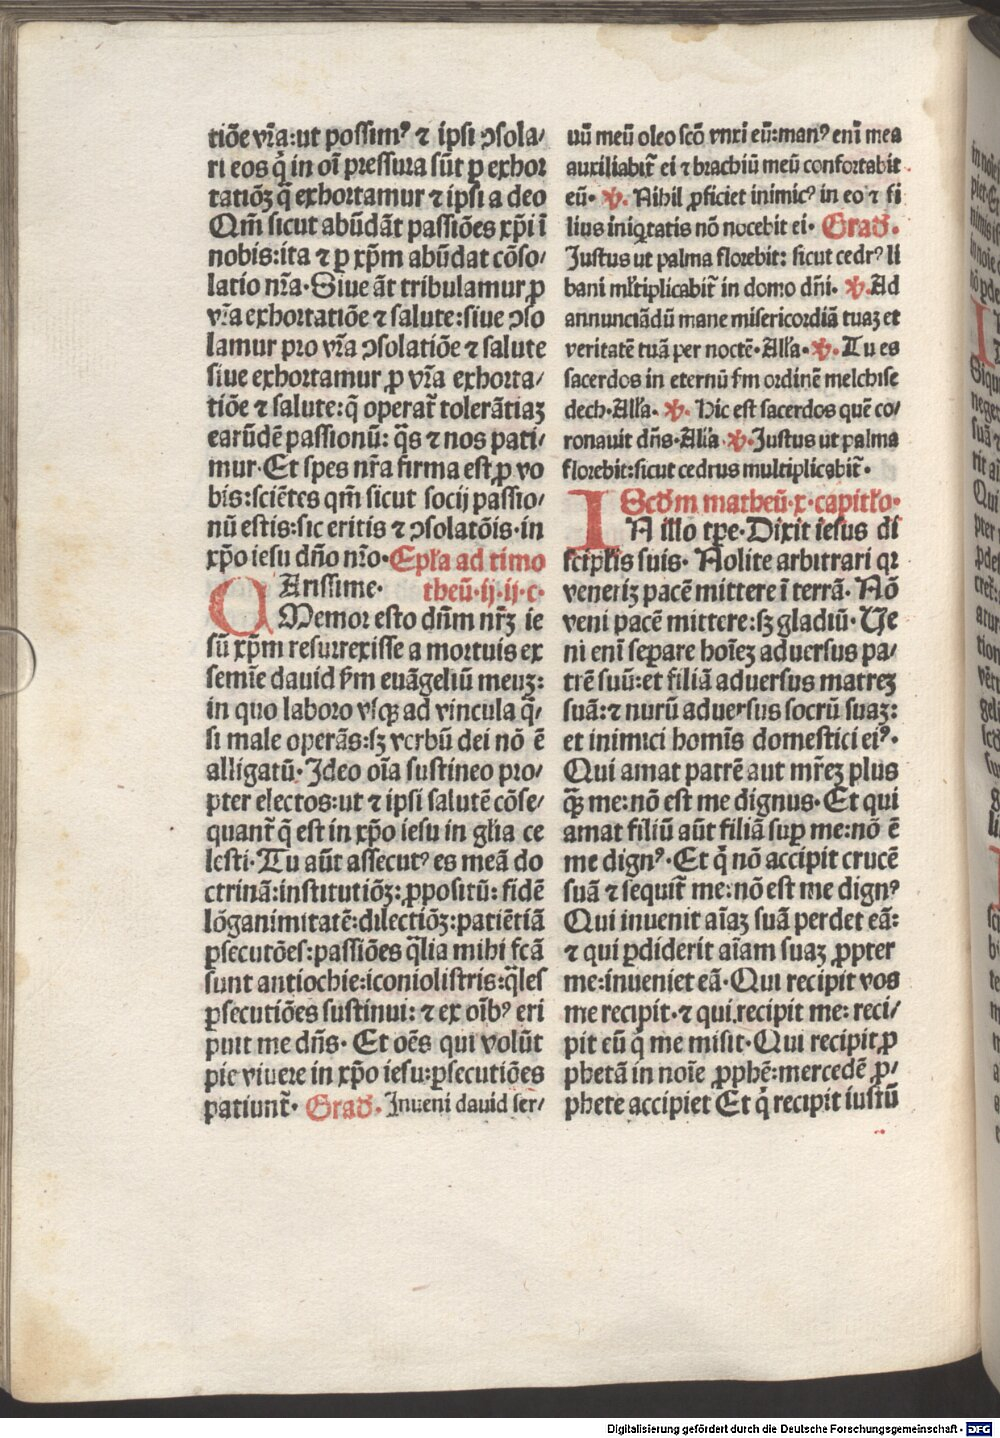 tiōe vr̄a:ut possimꝰ ⁊ ipsi ↄsola/
ri eos q̇ in oī pressura sūt p exhor
tatiōꝫ q̄ exhortamur ⁊ ipsi a deo
Qm̄ sicut abūdāt passiōes xp̄i ī
nobis:ita ⁊ p xp̄m abūdat cōso/
latio nr̄a·Siue āt tribulamur ꝓ
vr̄a exhortatiōe ⁊ salute:siue ↄso
lamur pro vr̄a ↄsolatiōe ⁊ salute
siue exhortamur ꝓ vr̄a exhorta/
tiōe ⁊ salute:q̄ operat̄ tolerātiaꝫ
earūdē passionū: q̄s ⁊ nos pati/
mur·Et spes nr̄a firma est ꝓ vo
bis:sciētes qm̄ sicut socij passio/
nū estis:sic eritis ⁊ ↄsolatōis·in
xp̄o iesu dn̄o nr̄o·Epl̄a ad timo
CArissime· theū·ij·ij·c·
Memor esto dn̄m nr̄ꝫ ie
sū xp̄m resurrexisse a mortuis ex
semīe dauid ẜm euāgeliū meuꝫ:
in quo laboro vsqꝫ ad vincula q̄/
si male operās:sꝫ verbū dei nō ē
alligatū·Ideo oīa sustineo pro/
pter electos:ut ⁊ ipsi salutē cōse/
quant̄ q̄ est in xp̄o iesu in gl̄ia ce
lesti·Tu aūt assecutꝰ es meā do
ctrinā:institutiōꝫ:ꝓpositū:fidē
lōganimitatē:dilectiōꝫ:patiētiā
ꝑsecutōes:passiōes q̄lia mihi fcā
sunt antiochie:iconiolistris:q̄les
ꝑsecutiōes sustinui: ⁊ ex oībꝰ eri
puit me dn̄s· Et oēs qui volūt
pie viuere in xp̄o iesu:ꝑsecutiōes
patiunt̄· Grad̄· Inueni dauid ser/
uū meū oleo scō vnxi eū:manꝰ enī mea
auxiliabit̄ ei ⁊ brachiū meū confortabit
eū· ℣. Nihil ꝓficiet inimicꝰ in eo ⁊ fi
lius iniq̇tatis nō nocebit ei· Grad̄·
Justus ut palma florebit: sicut cedrꝰ li
bani ml̄tiplicabit̄ in domo dn̄i· ℣. Ad
annunciādū mane misericordiā tuaꝫ et
veritatē tuā per noctē·All̄a· ℣. Tu es
sacerdos in eternū ẜm ordinē melchise
dech·All̄a· ℣. Hic est sacerdos quē co/
ronauit dn̄s·All̄a ℣. Justus ut palma
florebit:sicut cedrus multiplicabit̄·
Scd̄m matheū·x·capitl̄o·
IN illo tp̄e·Dixit iesus di
scipl̄is suis· Nolite arbitrari qꝛ
veneriꝫ pacē mittere ī terrā· Nō
veni pacē mittere:sꝫ gladiū· Ve
ni enī seꝑare hoīeꝫ aduersus pa/
trē suū:et filiā aduersus matreꝫ
suā:⁊ nurū aduersus socrū suaꝫ:
et inimici homīs domestici eiꝰ·
Qui amat patrē aut mr̄eꝫ plus
qꝫ̄ me:nō est me dignus·Et qui
amat filiū aūt filiā suꝑ me:nō ē
me dignꝰ·Et q̇ nō accipit crucē
suā ⁊ sequit̄ me:nō est me dignꝰ
Qui inuenit aīaꝫ suā perdet eā:
⁊ qui ꝑdiderit aīam suaꝫ ꝓpter
me:inueniet eā·Qui recipit vos
me recipit·⁊ qui recipit me: reci/
pit eū q̇ me misit·Qui recipit ꝓ
phetā in noīe ꝓphē:mercedē ꝓ/
phete accipiet Et q̇ recipit iustū
Digitalisierung gefördert durch die Deutsche Forschungsgemeinschaft · DFG